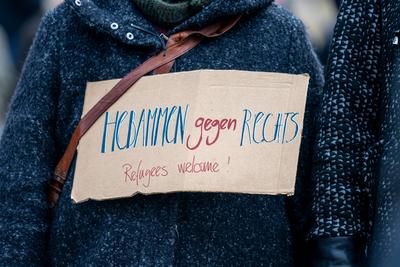 HEBAMMEN gegen RECHTS
Refugees welcome !